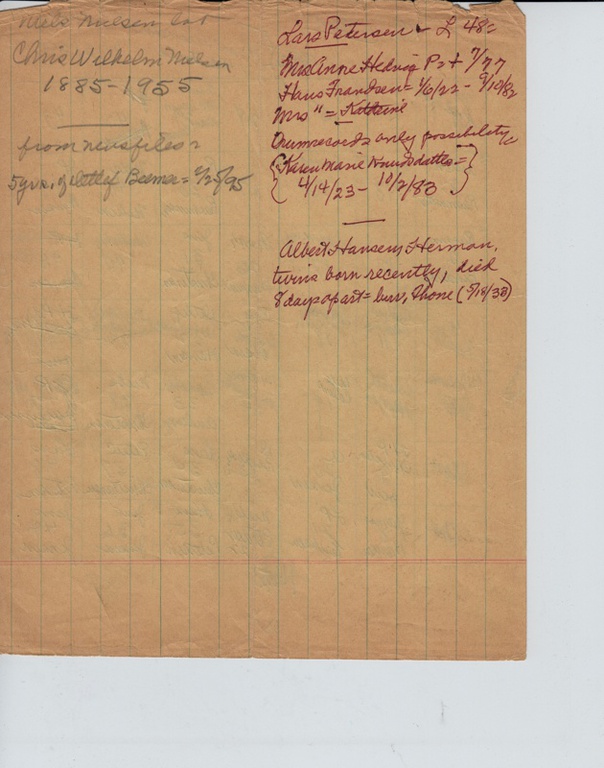 Nels Nielsen lot
Chris Wilhelm Nielsen
1885-1955
from news files =
5 yrs. of Detlef Beemer = 2/25/95
Lars Petersen - L 48 =
Mrs Anne Hedvig P = + 7/77
Hans Frandsen = 1/6/22 - 9/10/82
Mrs " = Kathrine
records only possibility
{Karen Marie =}
4/14/23 - 10/2/83
Albert Hansens Herman,
twins born recently, died
8 days apart = bur, (5/18/33)